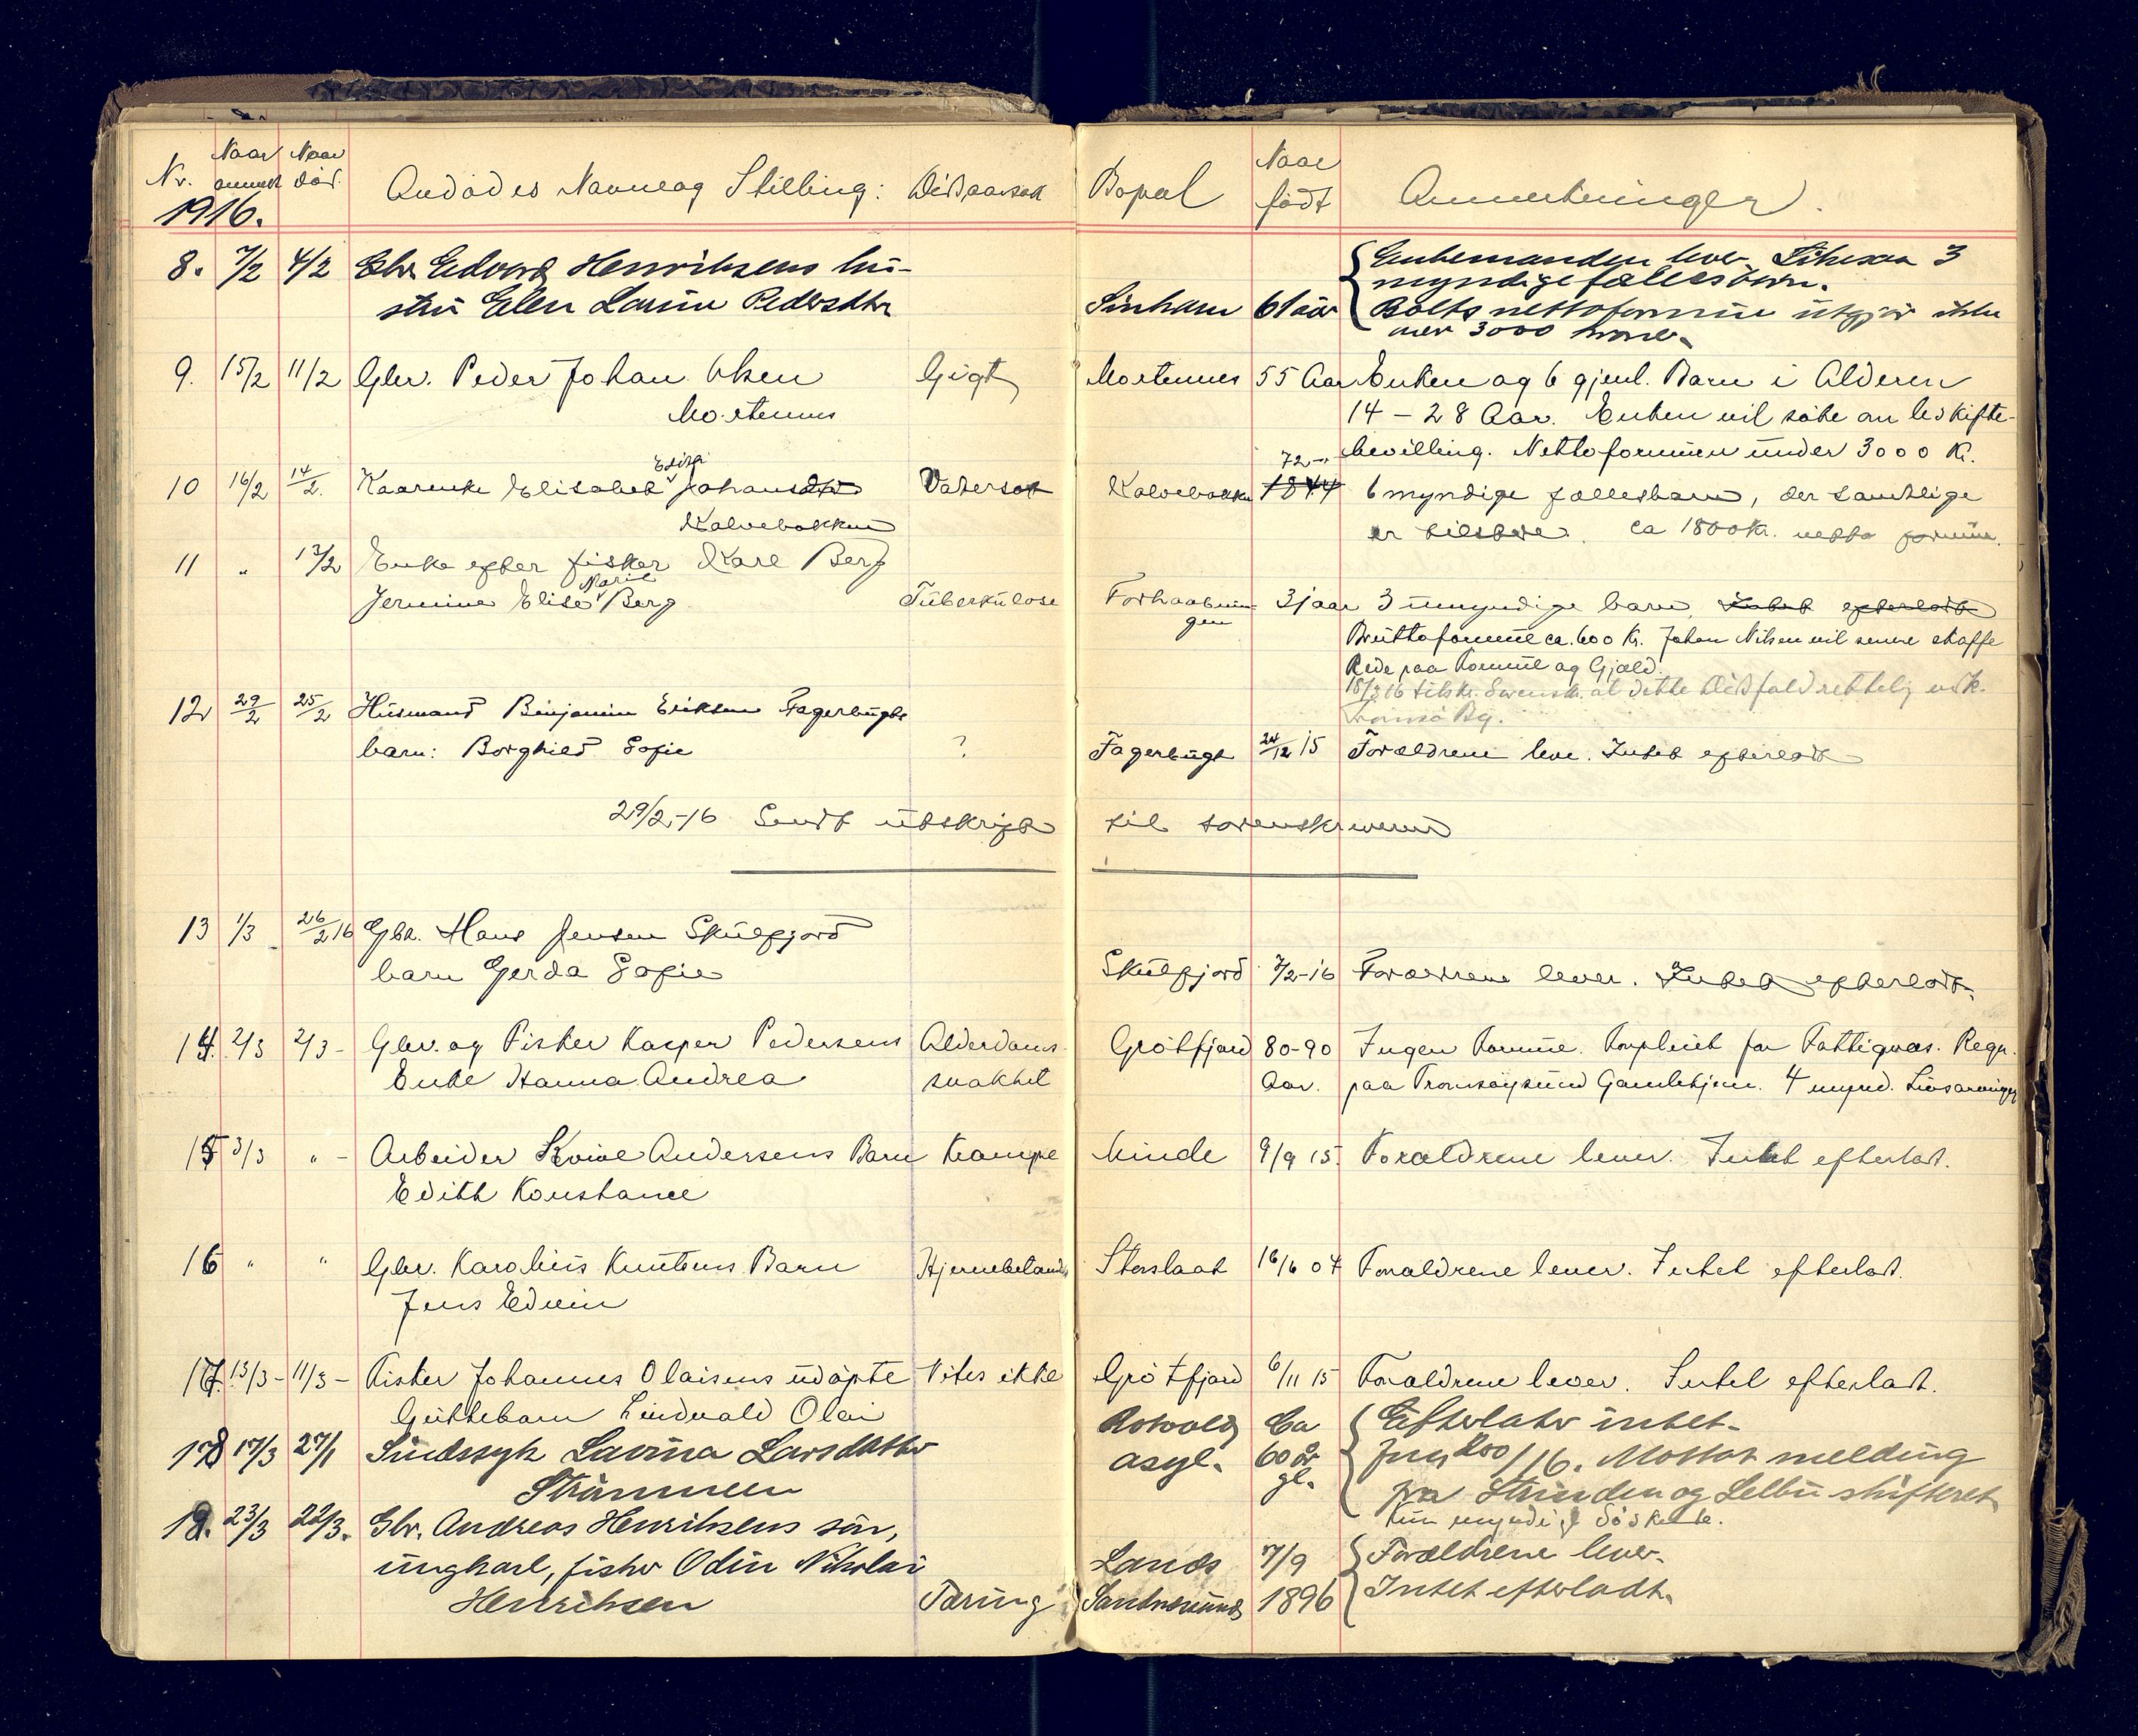 Nr. Naar anmeldt Naar död. Avdödes Navn og Stilling: Dødsaarsak Bopæl Naar födt Anmerkninger.
1916.
8. 7/2 4/2 Gbr. Edvard Henriksens hu-
stru Elen Larine Pedersdtr Sinkaen 61 aar
{Enkemanden lever. Likesaa 3
myndige fællesbörn.
Boets nettoformue utgjör ikke
over 3000 kroner.
9. 15/2 11/2 Gbr. Peder Johan Olsen Gigt Mortennes 55 Aar Enken og 6 gjenl. Barn i Alderen
Mortennes 14 - 28 Aar. Enken vil söke om uskifte-
bevilling. Nettoformuen under 3000 Kr.
10 16/2 14/2. Kaarenke Elisabet Edisa Johansdtr Vatersot Kalvebakken 1844 72 6 myndige fællesbarn, der samtlige
Kalvebakken er tilstede. ca 1800 kr. netto formue.
11 " 13/2 Enke efter fisker Karl Berg
Jermine Elise Marie Berg Tüberkülose Forhaabnin-
gen 31 aar 3 umyndige barn. Intet efterladt
Bruttoformue ca. 600 Kr. Johan Nilsen vil senere skaffe
Rede paa Formue og Gjæld.
18/3 16 tilskr. Sorensk. at dette Dödsfald rettelig vedk.
Tromsö By.
12 29/2 25/2 Husmand Benjamin Eriksen Fagerbugts
barn: Borghild Sofie ? Fagerbugt 24/12 15 Forældrene leve. Intet efterladt
29/2-16 Sendt utskrift til sorenskriveren
13 1/3 26/2 16 Gbr. Hans Jensen Skulfjord
barn Gerda Sofie Skulfjord 7/2-16 Forældrene lever. Intet efterladt.
14. 2/3 2/3 - Gbr. og Fisker Kasper Pedersens Alderdoms- Grötfjord 80-90 Ingen Formue. Forpleiet for Fattigvæs. Regn.
Enke Hanna Andrea svakhet Aar. paa Tromsöysund Gamlehjem. 4 mynd. Livsarvinger
15 3/3 " - Arbeider Andersens Barn Krampe Minde 9/9 15. Forældrene lever. Intet efterlat.
Edith Konstance
16 " " Gbr. Karolius Knutsens Barn Hjernebetænd. Storslaat 16/6 04 Forældrene lever. Intet efterlat.
Jens Edvin
17. 13/3 - 11/3 - Fisker Johannes Olaisens udöpte Vites ikke Grötfjord 6/11 15 Forældrene lever. Intet efterlat.
Guttebarn Lindvald Olai
18 17/3 27/1 Sindssyk Lavina Larsdatter Rotvold Ca {Efterlater intet.
Strömmen asyl. 60 år
gl. Jnr. 200/16. Mottat melding
fra Strinden og Selbu skifteret
Kun myndige Söskende.
19. 23/3 22/3. Gbr. Andreas Henriksens sön,
ungkarl, fisker Odin Nikolai Lands 7/9 {Forældrene lever.
Henriksen Tæring Sandnessund 1896 Intet efterladt.